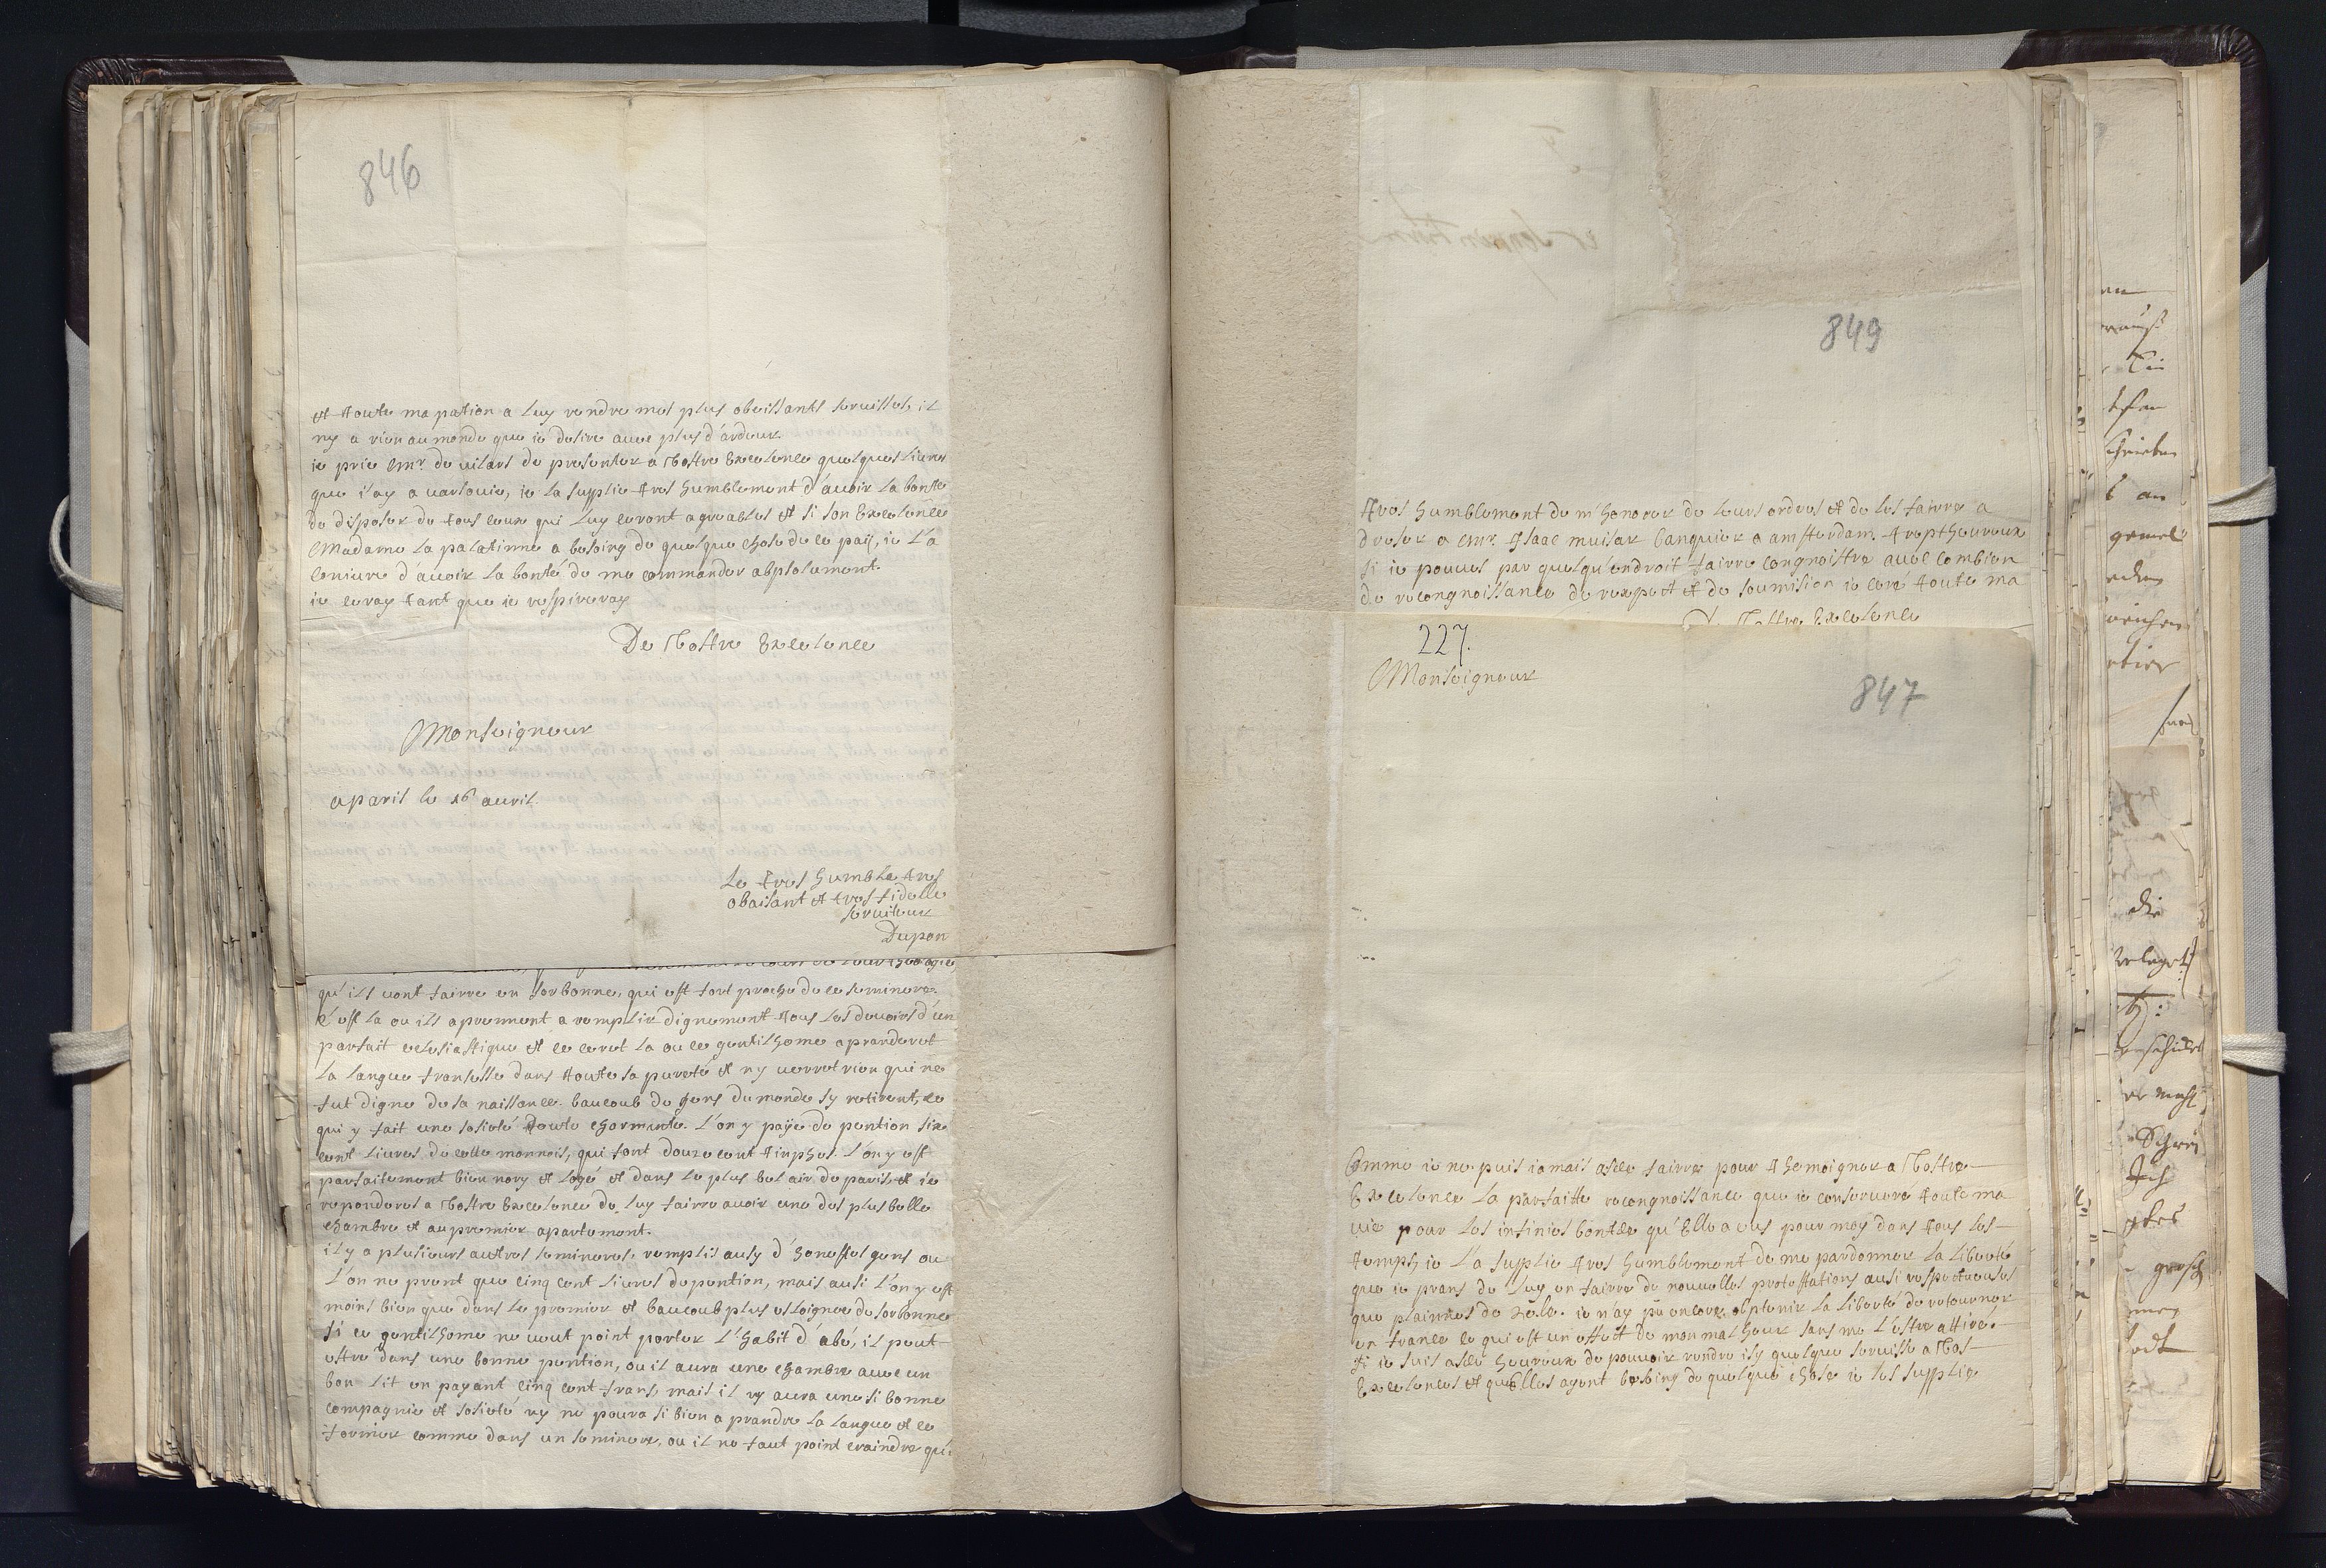 846
et toute ma pation a luy rendre mes plus obeissants seruisses, il
ny a rien au monde que ie desire auec plus d'ardeur.
ie prie Mr. de uilars de presenter a Vostre Excelence quelques liures
que i'ay a uarsouie, ie la supplie tres humblement d'auoir la bonte
de disposer de tous ceux qui luy seront agreables et si son Excelence
Madame la palatinne a besoing de quelque chose de ce païs, ie l'a
coniure d'auoir la bonté de me commander absolument.
ie seray tant que ie respireray
De Vostre Excelence
Monseigneur
a paris le 16 auril.
Le tres humble tres
obaisant et tres fidelle
seruiteur
Dupon
qu'ils uont fairre en sorbonne, qui est fort proche de ce seminere.
c'est la ou ils aprennent a remplir dignement tous les deuoirs d'un
parfait eclesiastique et ce ceret la ou ce gentilhome aprandret
la langue fransesse dans toute sa pureté et ny uerret rien qui ne
fut digne de sa naissance. baucoub de gens du monde sy retirent, ce
qui y fait une sosieté toute charmente. l'on y paye de pention six
cent liures de cette monnois, qui font douze cent timphes. l'on y est
parfaitement bien nory et logé et dans le plus bel air de paris et ie
reponderes a Vostre Excelence de luy fairre auoir une des plus belle
chambre et au premier apartement.
il y a plusieurs autres semineres, remplis ausy d'honestes gens ou
l'on ne prent que cinq cent liures de pention, mais ausi l'on y est
moins bien que dans le premier et baucoub plus esloignee de sorbonne
si ce gentilhome ne ueut point porter l'habit d'abé, il peut
estre dans une bonne pention, ou il aura une chambre auec un
bon lit en payant cinq cent frans, mais il ny aura une si bonne
compagnie et sosieté ny ne poura si bien a prandre la langue et ce
former comme dans un seminere, ou il ne faut point craindre qu'i
849
tres humblement de m'honorer de leurs ordres et de les fairre a
dresser a Mr. Isaac muisar banquier a amsterdam. trop heureux
si ie pouues par quelqu'endroit fairre congnoistre auec combien
de recongnoissance de respect et de soumision ie ceré toute ma
De Vostre Excelence
227.
Monseigneur
847
Comme ie ne puis iamais assee fairre pour themoigner a Vostre
Excelence la parfaitte recongnoissance que ie conserueré toute ma
uie pour les infinies bontee qu'Elle a eus pour moy dans tous les
temps, ie l'a supplie tres humblement de me pardonner la liberté
que ie prans de luy en fairre de nouuelles protestations ausi respectueuses
que plainnes de zele. ie n'ay pu encore obptenir la liberté de retourner
en france ce qui est un effect de mon malheur sans me l'estre attiré.
si ie suis assé heureux de pouuoir rendre isy quelque seruisse a Vos
Excelences et qu'Elles ayent besoing de quelque chose ie les supplie
die
Schrei
Ich